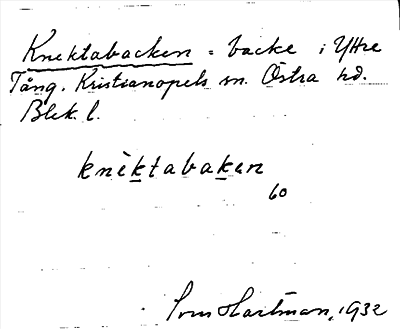 Knektabacken = backe i Yttre
Tång. Kristianopels sn. Östra hd.
Blek. l.
knèktabaken
60
Hartman, 1932